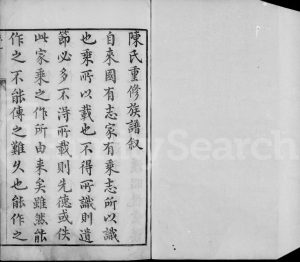 陳氏重修族譜敘
自來國有志家有乘志所以識
也乘所以載也不得所識則遺
節必多不淂所載則先德或佚
此家乘之作所由来矣雖然能
作之不能傳之難久也能作之